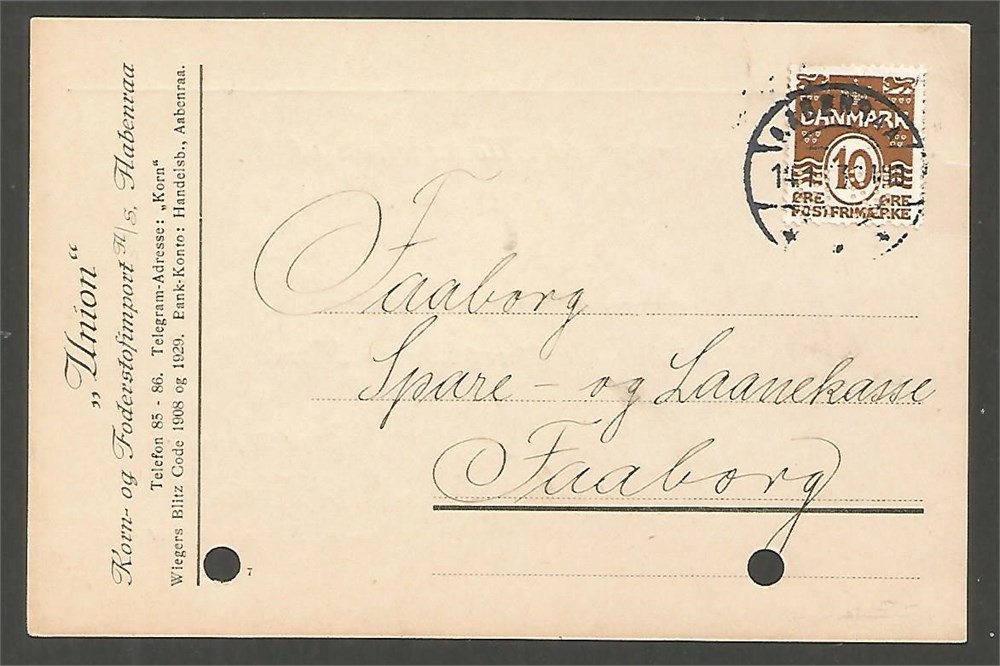 „Union“
Korn- og Foderstofimport A/S, Aabenraa
Telefon 85 - 86. Telegram-Adresse: „Korn“
Wiegers Blitz Code 1908 og 1929. Bank-Konto: Handelsb., Aabenraa.
7
DANMARK
10
ØRE ØRE
POSTFRIMÆRKE
AABENRAA
Faaborg
Spare- og Laanekasse
Faaborg